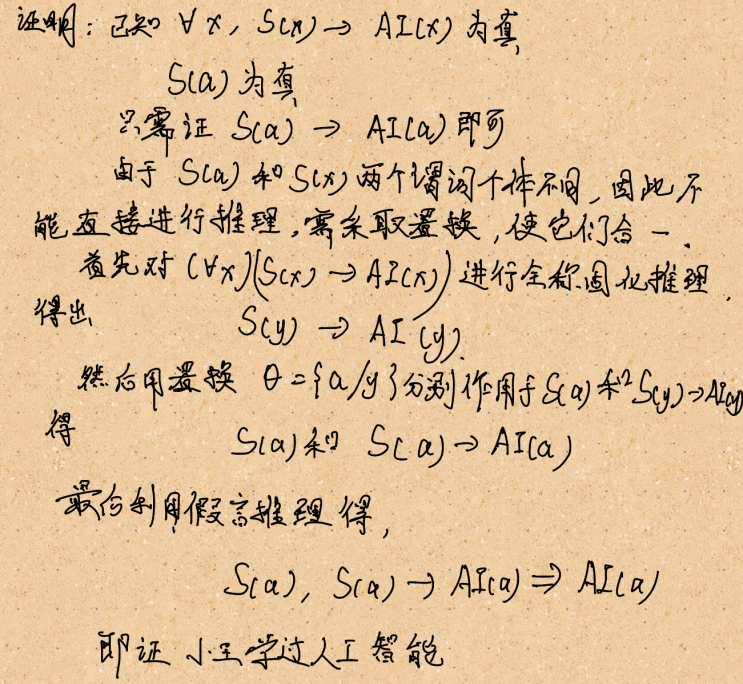 证明：已知 ∀x, S(x) → AI(x) 为真
S(a) 为真
只需证 S(a) → AI(a) 即可
由于 S(a) 和 S(x) 两个谓词个体不同，因此不
能直接进行推理，需采取置换，使它们合一.
首先对 (∀x)(S(x) → AI(x)) 进行全称固化推理.
得出
S(y) → AI(y).
然后用置换 θ={a/y} 分别作用于 S(a) 和 S(y)→AI(y)
得
S(a) 和 S(a) → AI(a)
最后利用假言推理得,
S(a), S(a) → AI(a) ⇒ AI(a)
即证 小王学过人工智能